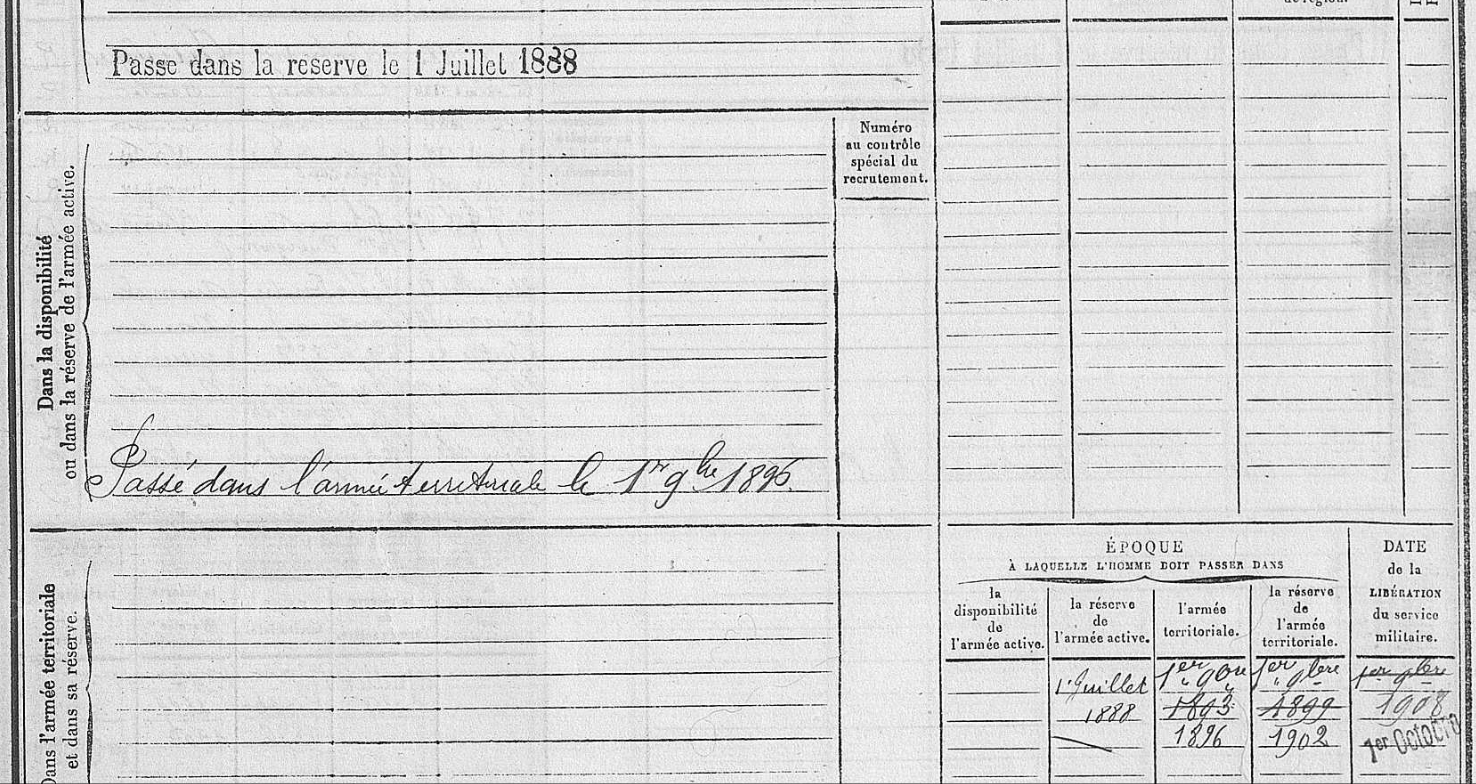 de région.
Passé dans la réserve le 1 Juillet 1888
Numéro
au contrôle
spécial du
recrutement.
Dans la disponibilité
ou dans la réserve de l'armée active.
Passé dans l'armée territoriale le 1er 9bre 1896.
Dans l'armée territoriale
et dans sa réserve.
ÉPOQUE
À LAQUELLE L'HOMME DOIT PASSER DANS
la
disponibilité
de
l'armée active.
la réserve
de
l'armée active.
l'armée
territoriale.
la réserve
de
l'armée
territoriale.
DATE
de la
LIBÉRATION
du service
militaire.
1er Juillet
1888
1er 9bre
1893
1896
1er 9bre
1899
1902
1er 9bre
1908
1er Octobre